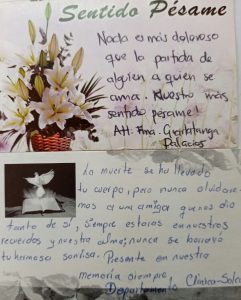 Sentido Pésame
Nada es más doloroso
que la partida de
alguien a quien se
ama. Nuestro más
sentido pésame!
Att. Fma.
Palacios
La muerte se ha llevado
tu cuerpo, pero nunca olvidare-
mos a una amiga que nos dio
tanto de sí, siempre estarás en nuestros
recuerdos y nuestra alma; nunca se borrará
tu hermosa sonrisa. Presente en nuestra
memoria siempre
Departamento